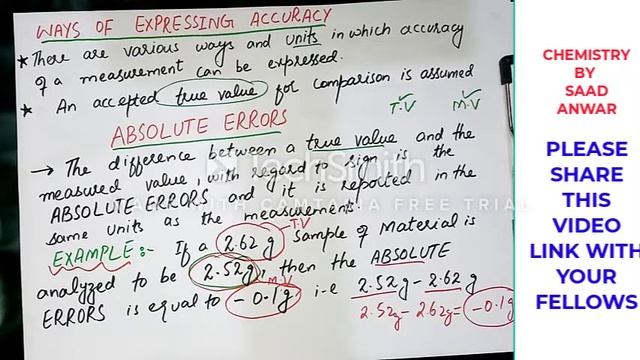 WAYS OF EXPRESSING ACCURACY
* There are various ways and units in which accuracy
of a measurement can be expressed.
* An accepted true value for comparison is assumed
T.V M.V
ABSOLUTE ERRORS
→ The difference between a true value and the
measured value, with regard to sign is the
ABSOLUTE ERRORS and it is reported in the
same units as the measurement.
T.V
EXAMPLE:- If a 2.62 g sample of Material is
analyzed to be 2.52g, then the ABSOLUTE
M.V
ERRORS is equal to -0.1g. i.e 2.52g - 2.62g
2.52g - 2.62g = -0.1g
TechSmith
MADE WITH CAMTASIA FREE TRIAL
CHEMISTRY
BY
SAAD
ANWAR
PLEASE
SHARE
THIS
VIDEO
LINK WITH
YOUR
FELLOWS